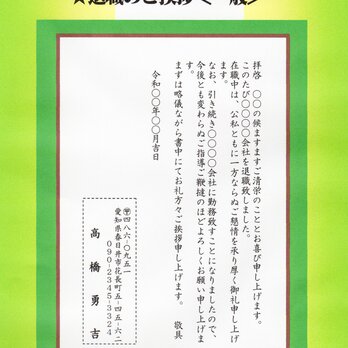 ★退職のご挨拶<一般>
拝啓　〇〇の候ますますご清栄のこととお喜び申し上げます。
このたび〇〇〇〇会社を退職致しました。
在職中は、公私ともに一方ならぬご懇情を承り厚く御礼申し上げ
ます。
なお、引き続き〇〇〇〇会社に勤務致すことになりましたので、
今後とも変わらぬご指導ご鞭撻のほどよろしくお願い申し上げま
す。
まずは略儀ながら書中にてお礼方々ご挨拶申し上げます。
敬具
令和〇〇年〇〇月吉日
〒四八六-〇九五一
愛知県春日井市花長町五-四五-六二
090-2345-3324
高橋勇吉